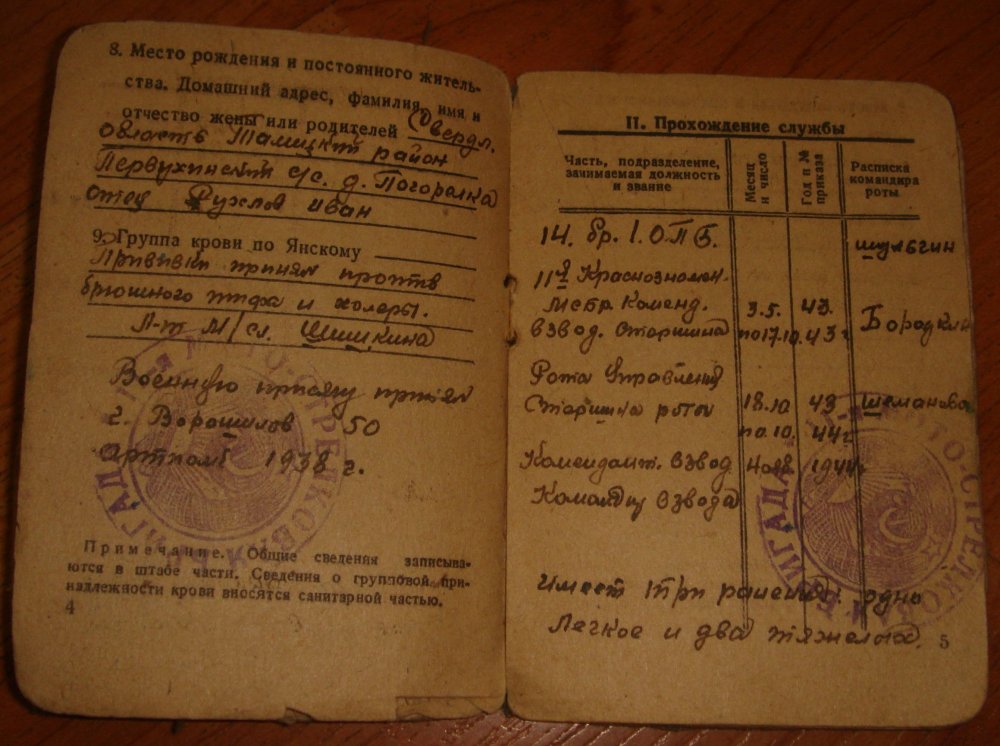 8. Место рождения и постоянного житель-
ства. Домашний адрес, фамилия, имя и
отчество жены или родителей Свердл.
область Талицкий район
Первухинский с/с. д. Погорелка
отец Рухлов Иван
9. Группа крови по Янскому
Прививки принял против
брюшного тифа и холеры.
Л-т М/сл. Шишкина
Военную присягу принял
г. Ворошилов 50
артполк 1938 г.
Примечание. Общие сведения записыва-
ются в штабе части. Сведения о групповой при-
надлежности крови вносятся санитарной частью.
4
МОТО-СТРЕЛКОВАЯ БРИГАДА
II. Прохождение службы
Часть, подразделение,
занимаемая должность
и звание
Месяц
и число
Год и №
приказа
Расписка
командира
роты
14. бр. 1. О.П.Б. Шульгин
11я Краснознамен.
Мсбр. Коменд. 3.5. 43.
взвод. Старшина по 17.10. 43 г
Рота Управления
Старшина роты 18.10 43 Шеманова
по.10. 44г.
Комендант. взвод 1944г.
Командир взвода
Имеет три ранения одно
легкое и два тяжелых.
5
МОТО-СТРЕЛКОВАЯ БРИГАДА